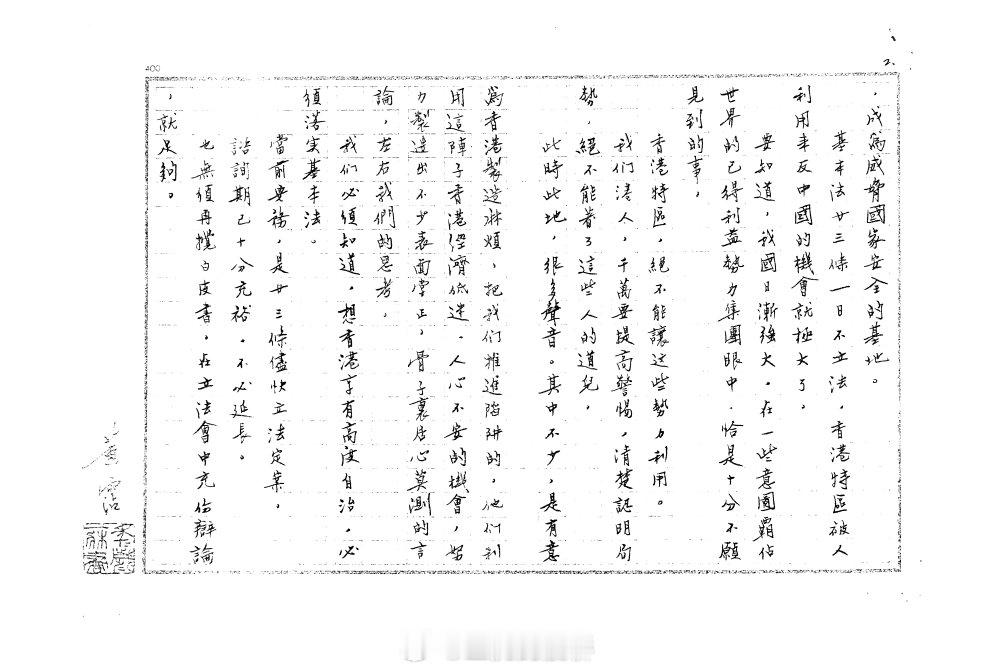 400
2.
，成為威脅國家安全的基地。
基本法廿三條一日不立法，香港特區被人
利用来反中國的機會就極大了。
要知道，我國日漸強大。在一些意圖霸佔
世界的已得利益勢力集團眼中，恰是十分不願
見到的事，
香港特區，絕不能讓這些勢力利用。
我们港人，千萬要提高警惕，清楚認明局
勢，絕不能着了這些人的道兒，
此時此地，很多聲音。其中不少，是有意
為香港製造麻煩，把我们推進陷阱的，他们利
用這陣子香港經濟低迷，人心不安的機會，努
力製造出不少表面堂正，骨子裏居心莫測的言
論，左右我們的思考，
我们必須知道，想香港享有高度自治，必
須落实基本法。
當前要務，是廿三條儘快立法定案，
諮詢期已十分充裕，不必延長。
也無須再攪白皮書，在立法會中充份辯論
，就足夠。
黃霑